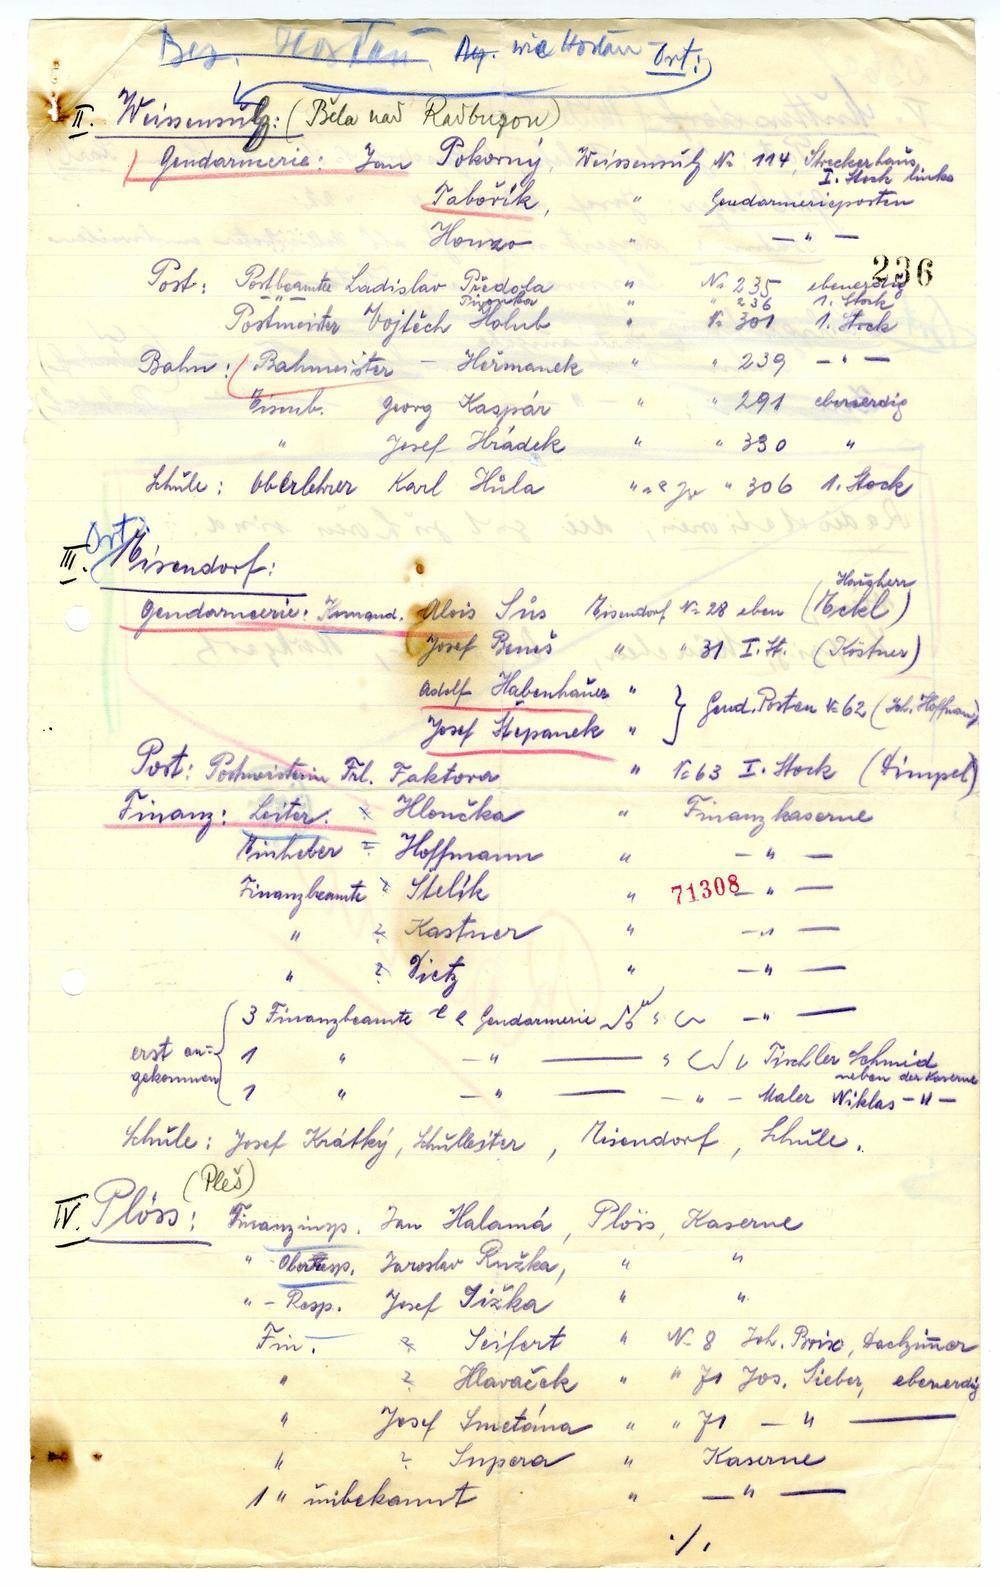 Bez. Hostau. Bez. wie Hostau Ort:
II. Weissensulz: (Běla nad Radbuzou)
Gendarmerie: Jan Pokorný, Weissensulz No 114, Streckerhaus,
I. Stock links
Tabořík, " Gendarmerieposten
Honzo " — " —
236
Post: Postbeamte Ladislav Předota " No 235 ebenerdig
" " 236 1. Stock
Postmeister Vojtěch Holub " No 301 1. Stock
Bahn: Bahmeister — Heřmanek " " 239 — " —
Eisenb. Georg Kaspár " " 291 ebenerdig
" Josef Hrádek " " 330 "
Schule: Oberlehrer Karl Hůla " " 306 1. Stock
III. Ort Eisendorf:
Hausherr
Gendarmerie: Komand. Alois Süs Eisendorf No 28 eben (Meckl)
Josef Beneš " " 31 I. St. (Köstner)
Adolf Habenhauer "
} Gend. Posten No 62 (Joh. Hoffmann)
Josef Štěpanek "
Post: Postmeisterin Frl. Faktora " No 63 I. Stock (Dimpel)
Finanz: Leiter. ? Hlončka " Finanzkaserne
Einheber ? Hoffmann " — " —
Finanzbeamte ? Stelík " 71308 — " —
" ? Kastner " — " —
" ? Dietz " — " —
3 Finanzbeamte Gendarmerie — " —
erst an= 1 " — " — " Tischler Schmid
gekommen neben der Kaserne
1 " — " — — " — Maler Niklas — " —
Schule: Josef Krátký, Schulleiter, Eisendorf, Schule.
(Pleš)
IV. Plöss: Finanzinsp. Jan Halamá, Plöss, Kaserne
" Oberresp. Jaroslav Ružka, " "
" — Resp. Josef Žižka " "
Fin. ? Seifert " No 8 Joh. Brix, Dachzimmer
" ? Hlaváček " " 71 Jos. Sieber, ebenerdig
" Josef Smetána " " 71 — " —
" ? Supera " Kaserne
1 " unbekannt " — " —
./.